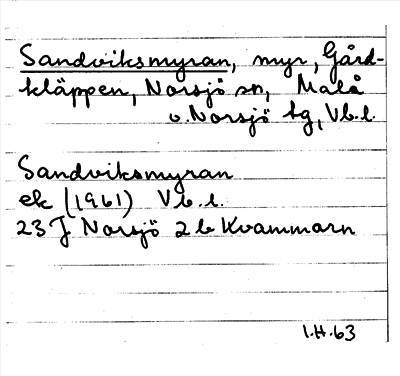 Sandviksmyran, myr, Gård-
kläppen, Norsjö sn, Malå
o. Norsjö tg, Vb.l.
Sandviksmyran
ek (1961) Vb.l.
23 J Norsjö 2 b Kvammarn
1.H.63